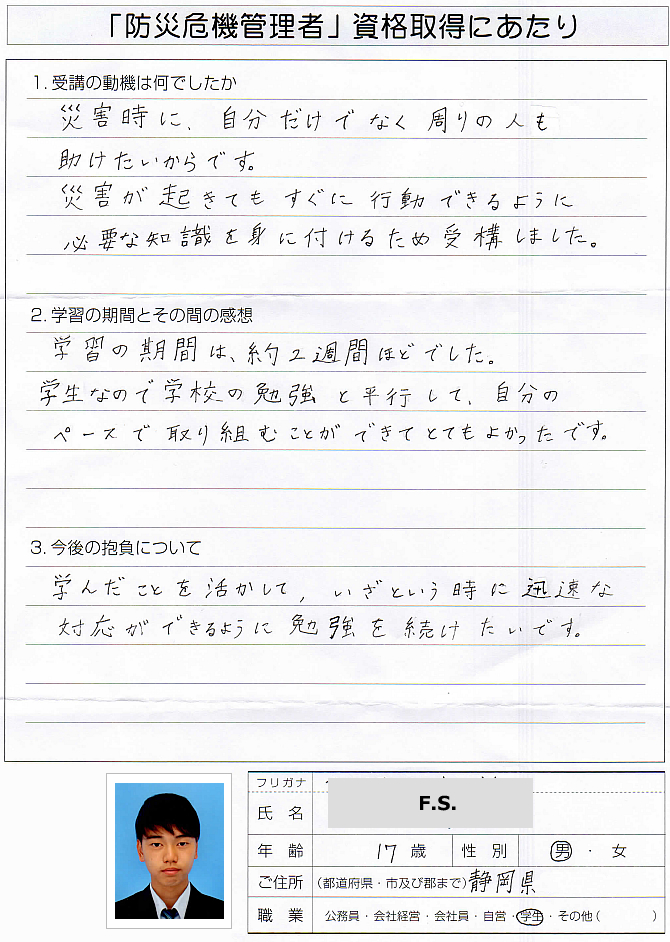 「防災危機管理者」資格取得にあたり
1. 受講の動機は何でしたか
災害時に、自分だけでなく周りの人も
助けたいからです。
災害が起きてもすぐに行動できるように
必要な知識を身に付けるため受構しました。
2. 学習の期間とその間の感想
学習の期間は、約2週間ほどでした。
学生なので学校の勉強と平行して、自分の
ペースで取り組むことができてとてもよかったです。
3. 今後の抱負について
学んだことを活かして、いざという時に迅速な
対応ができるように勉強を続けたいです。
フリガナ
氏 名 F.S.
年 齢 17歳 性 別 男・女
ご住所 (都道府県・市及び郡まで) 静岡県
職 業 公務員・会社経営・会社員・自営・学生・その他( )